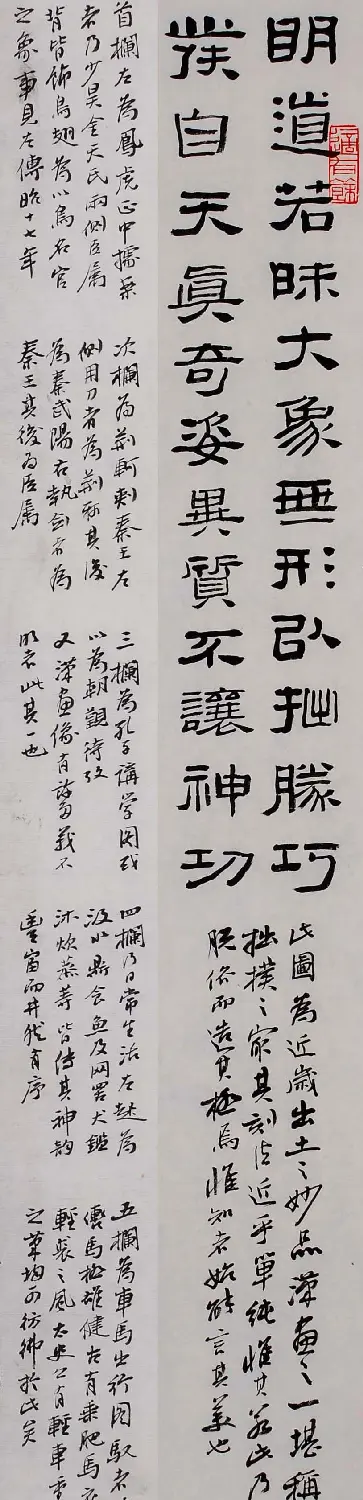 明道若昧大象無形以拙勝巧
發自天真奇姿異質不讓神功
此圖為近歲出土之妙品漢畫之一堪稱
拙樸之最其刻法近乎單純惟其若此乃
脫俗而造其極焉惟知者始能言其義也
首欄左為鳳虎正中擂桑
者乃少昊金天氏兩側臣屬
背皆飾鳥翅為以鳥名官
之象事見左傳昭十七年
次欄為荊軻刺秦王左
側用刀者為荊軻其後
為秦武陽右執劍者為
秦王其後為臣屬
三欄為孔子講學圖或
以為朝觀待考
又漢畫像有諸多義不
明者此其一也
四欄乃日常生活左起為
汲水鼎食魚及網罟犬鑑
沐炊蒸等皆傳其神韵
豐富而井然有序
五欄為車馬出行圖馭者
馬極雄健右有乘肥馬衣
輕裘之風太史公有輕車重
之筆均可彷彿於此矣